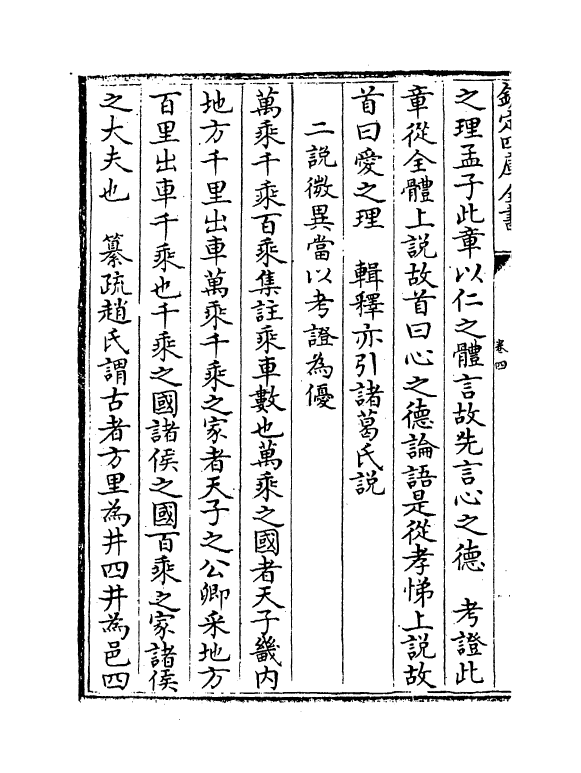 欽定四庫全書
卷四
之理孟子此章以仁之體言故先言心之德　考證此
章從全體上説故首曰心之德論語是從孝悌上説故
首曰愛之理　輯釋亦引諸葛氏説
二説微異當以考證為優
萬乘千乘百乘集註乘車數也萬乘之國者天子畿内
地方千里出車萬乘千乘之家者天子之公卿采地方
百里出車千乘也千乘之國諸侯之國百乘之家諸侯
之大夫也　纂疏趙氏謂古者方里為井四井為邑四